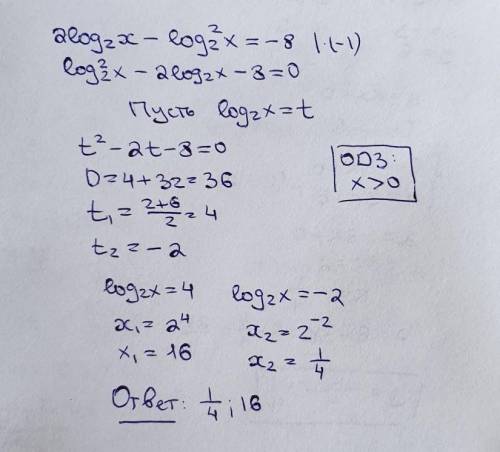 2log₂x − log₂²x = −8 | · (−1)
log₂²x − 2log₂x − 8 = 0
Пусть log₂x = t
t² − 2t − 8 = 0
D = 4 + 32 = 36
t₁ = (2+6)/2 = 4
t₂ = −2
ОДЗ:
x > 0
log₂x = 4
x₁ = 2⁴
x₁ = 16
log₂x = −2
x₂ = 2⁻²
x₂ = 1/4
Ответ: 1/4; 16